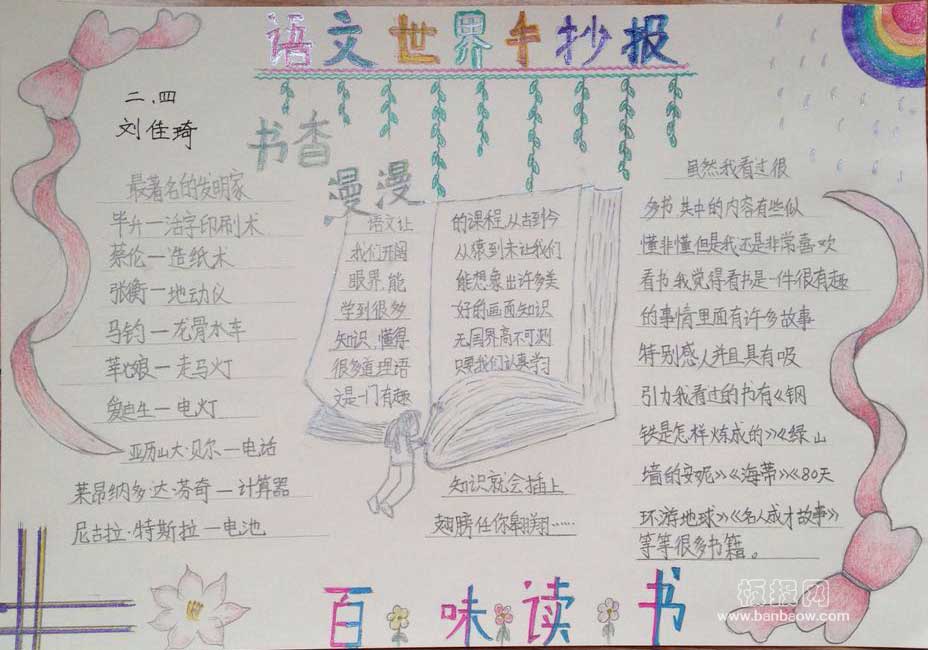 语文世界手抄报
二.四
刘佳琦
书香
漫漫
最著名的发明家
毕升—活字印刷术
蔡伦—造纸术
张衡—地动仪
马钧—龙骨水车
莘七娘—走马灯
爱迪生—电灯
亚历山大·贝尔—电话
莱昂纳多·达·芬奇—计算器
尼古拉·特斯拉—电池
语文让
我们开阔
眼界,能
学到很多
知识,懂得
很多道理语
文是一门有趣
的课程,从古到今
从猿到未让我们
能想象出许多美
好的画面知识
无国界高不可测
只要我们认真学习
知识就会插上
翅膀任你翱翔……
虽然我看过很
多书其中的内容有些似
懂非懂但是我还是非常喜欢
看书我觉得看书是一件很有趣
的事情里面有许多故事
特别感人并且具有吸
引力我看过的书有《钢
铁是怎样炼成的》《绿山
墙的安妮》《海蒂》《80天
环游地球》《名人成才故事》
等等很多书籍。
百味读书
板报网
www.banbaow.com